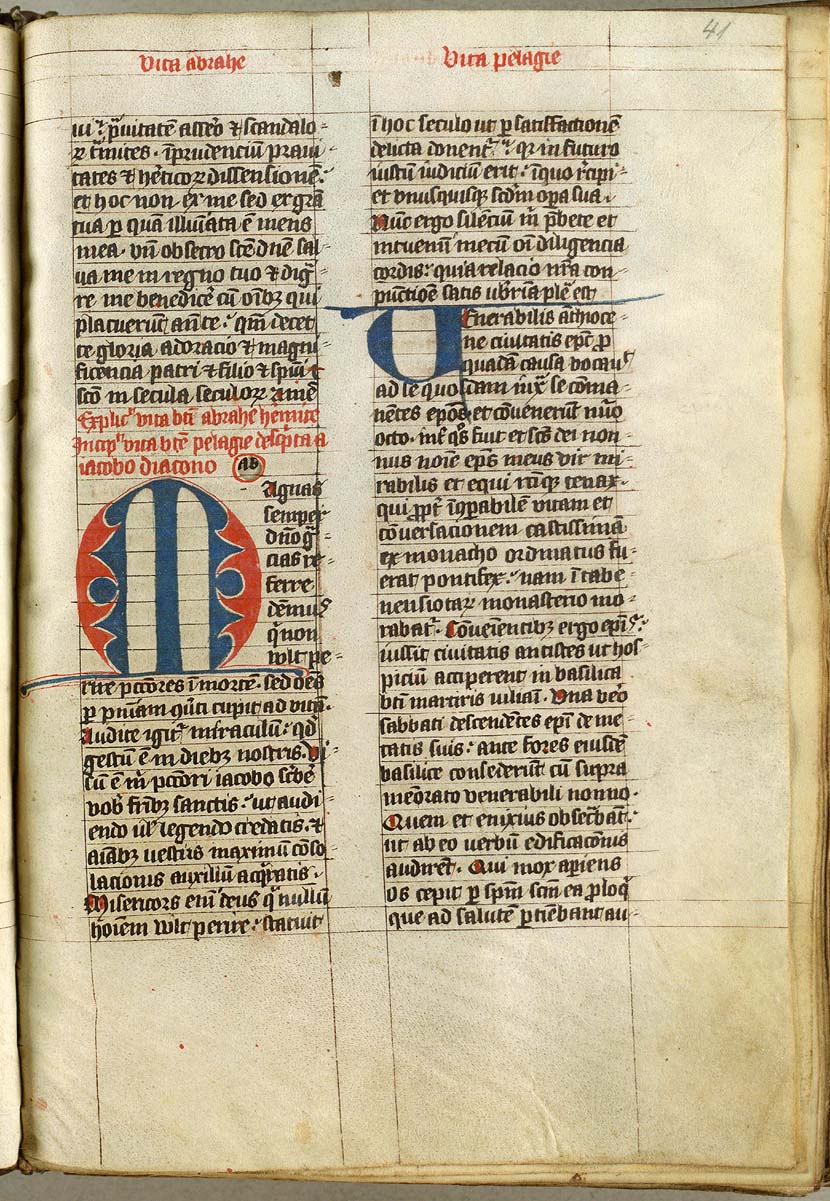 41
Vita abrahe
Vita pelagie
ui. prauitatē assero & scandalo-
rū t̄mites. īprudenciū praui
tates & hēticorū dissensionē.
et hoc non ex me sed ex grā
tua per quā illuīata ē mens
mea. vñ obsecro scē dñe sal-
ua me in regno tuo & digᷓ
re me benedicē cū oībꝫ qui
placuerūt an̄ te. qm̄ decet
te gloria adoracio & magni
ficencia patri & filio & spūi
scō in secula seculorū. amē
Explic̄ vita bt̄i abrahe hēmite
Incip̄ vita bt̄e pelagie desc̄pta a
iacobo diacono
ab
Magnas
semper
dño gᷓ-
cias re-
ferre
dēmus
q̄ non
wlt pe-
rire pctōres ī mortē. sed oēs
per pn̄iam qūti cupit ad vitā.
Audite igit᷑ miraculū. qd̄
gestū ē in diebꝫ nostris. Vi-
sū ē m̄ pctōri iacobo sc̄bē
vob̄ frībꝫ sanctis. ut audi
endo ul̄ legendo credatis. &
aīabꝫ vestris maximū cōso
lacionis auxiliū acqᷓratis.
Misericors eni deus q̄ nullū
hoīem wlt perire. statuit
ī hoc seculo ut ꝑ satisfactionē
delicta donent᷑. qr in futuro
iustū iudiciū erit. ī quo rᷓcipi-
et vnusquisqꝫ scdm̄ opa sua.
Nūc ergo silenciū m̄ pᷓbete et
intuemī mecū oī diligencia
cordis. quia relacio nrᷓa con-
pūctiōē satis ubᷓtia plē est
Venerabilis anthioce-
ne ciuitatis ep̄c ꝓ
quadā causa vocauᷓ
ad se quosdam iuxᷓ se cōma-
nētes epōs et cōuenerūt nūo
octo. int̄ qōs fuit et scōs dei non-
nus noīe ep̄s meus vir mi-
rabilis et equi rūqꝫ tenax.
qui ꝓpt̄ īqꝑabilē vitam et
cōuersacionem castissimā
ex monacho ordinatus fu-
erat pontifex. nam ī tabe-
nensiotarū monasterio mo-
rabat᷑. Conueīentibꝫ ergo epīs.
iussit ciuitatis antistes ut hos-
piciū acciperent in basilica
bt̄i martiris iuliani. Vna v̄o
sabbati descendētes epī de me-
tatis suis. ante fores eiusdē
basilice consederūt cū supra
meōrato venerabili nonno.
Quem et enixius obsecᷓbant᷑.
ut ab eo verbū edificacōnis
audirēt. Qui mox aꝑiens
os cepit ꝑ spm̄ scm̄ ea ꝓloqᷓ
que ad salutē ꝑtinēbant au-